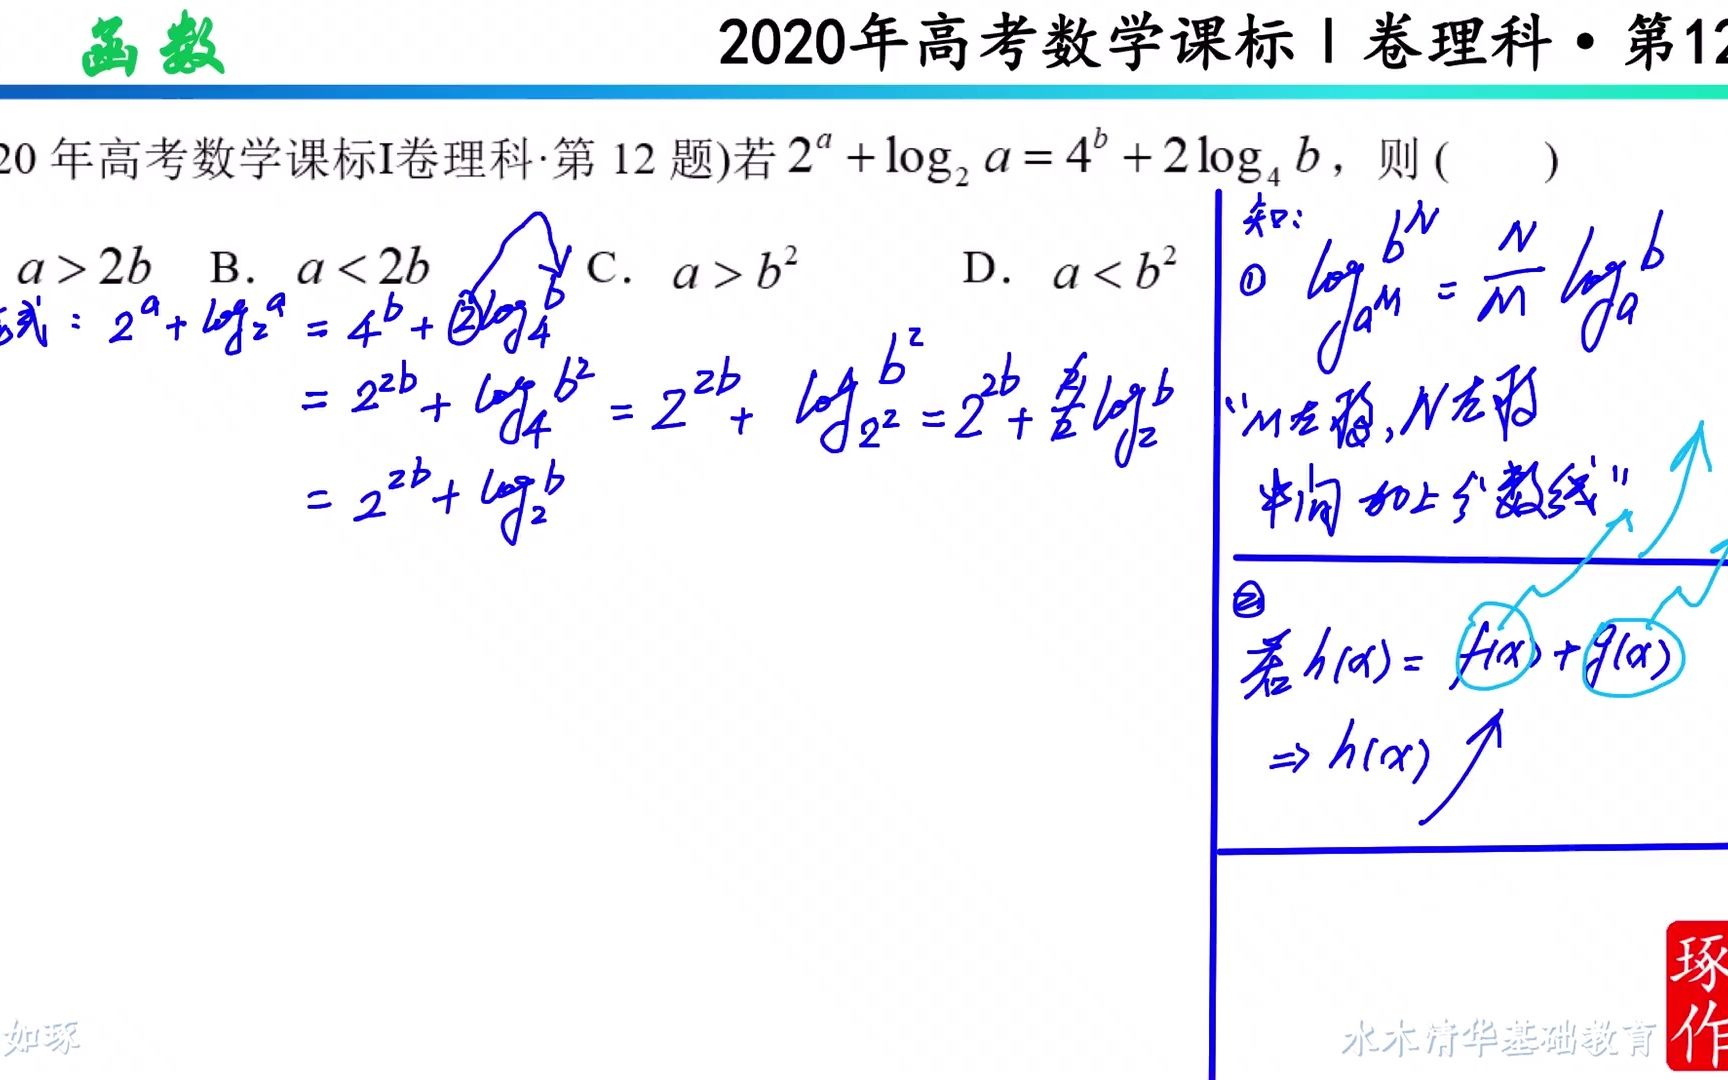 函数
2020年高考数学课标Ⅰ卷理科·第12
20 年高考数学课标Ⅰ卷理科·第 12 题)若 2^a + log_2 a = 4^b + 2 log_4 b，则 (  )
a > 2b B. a < 2b C. a > b^2 D. a < b^2
式：2^a + log_2 a = 4^b + 2 log_4 b
= 2^{2b} + log_4 b^2 = 2^{2b} + log_{2^2} b^2 = 2^{2b} + 2/2 log_2 b
= 2^{2b} + log_2 b
知：
① log_{a^M} b^N = N/M log_a b
中间加上分数线”
②
若 h(x) = f(x) + g(x)
⇒ h(x)
如琢
水木清华基础教育
琢
作